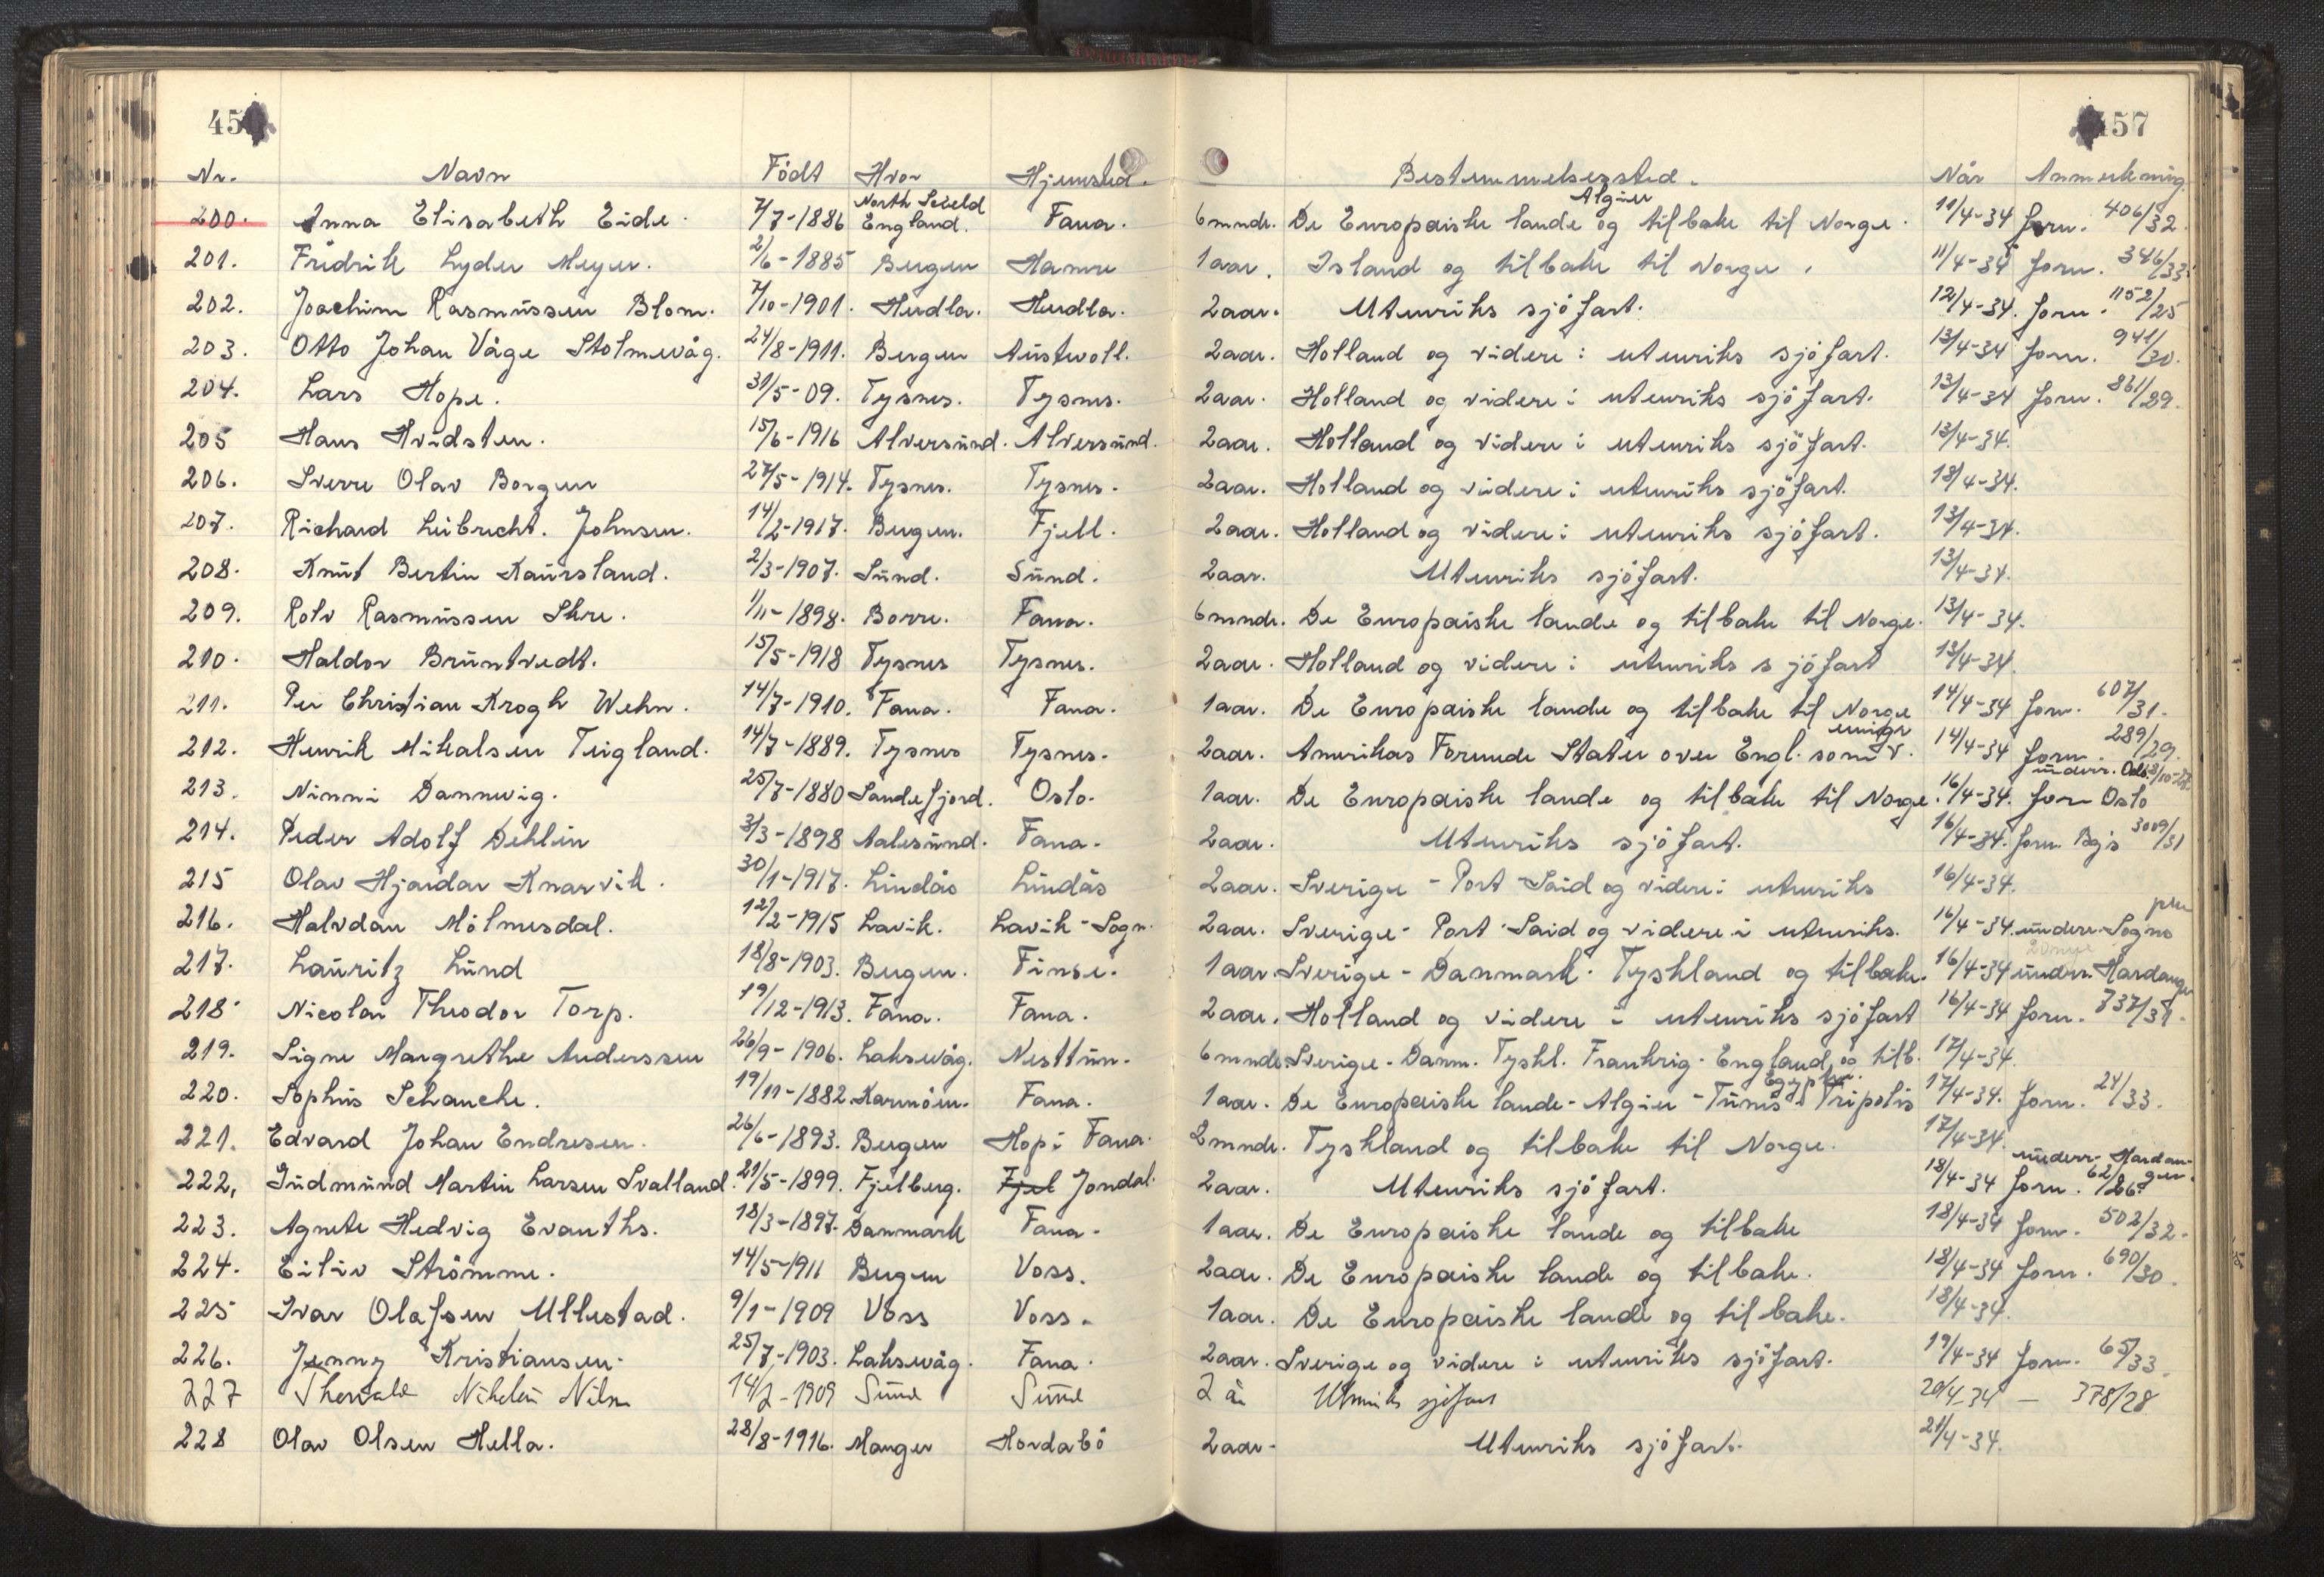 45
457
Nr. Navn Födt Hvor Hjemsted. Bestemmelsessted. Når Anmerkning
200. Anna Elisabeth Eide. 7/7-1886 North Scield England. Fana. 6 mndr. De Europæiske lande Algier og tilbake til Norge. 11/4-34 forn. 406/32.
201. Fridrik Lyder Meyer. 2/6-1885 Bergen Hamre 1 aar. Island og tilbake til Norge. 11/4-34 forn. 346/33.
202. Joachim Rasmussen Blom. 7/10-1901. Herdla. Herdla. 2 aar. Utenriks sjöfart. 12/4-34. forn. 1152/25
203. Otto Johan Våge Stolmevåg. 24/8-1911. Bergen Austevoll. 2 aar. Holland og videre i utenriks sjöfart. 13/4-34 forn. 941/30.
204. Lars Hope. 31/5-09. Tysnes. Tysnes. 2 aar. Holland og videre i utenriks sjöfart. 13/4-34 forn. 861/29.
205 Hans Hvidsten. 15/6-1916 Alversund. Alversund. 2 aar. Holland og videre i utenriks sjöfart. 13/4-34.
206. Sverre Olav Borgen 27/5-1914. Tysnes. Tysnes. 2 aar. Holland og videre i utenriks sjöfart. 13/4-34.
207. Richard Leibrecht. Johnsen. 14/2-1917. Bergen. Fjell. 2 aar. Holland og videre i utenriks sjöfart. 13/4-34.
208. Knut Bertin Kaursland. 2/3-1907. Sund. Sund. 2 aar. Utenriks sjöfart. 13/4-34.
209. Rolv Rasmussen Skre. 1/11-1898. Borre. Fana. 6 mndr. De Europæiske lande og tilbake til Norge. 13/4-34.
210. Haldor Bruntvedt. 15/5-1918 Tysnes Tysnes. 2 aar. Holland og videre i utenriks sjöfart 13/4-34.
211. Per Christian Krogh Wehn. 14/7-1910. Fana. Fana. 1 aar. De Europæiske lande og tilbake til Norge 14/4-34 forn. 607/31.
212. Henrik Mikalsen Teigland. 14/7-1889. Tysnes Tysnes. 2 aar. Amerikas Forende Stater over Engl. som emigr. 14/4-34 forn. 289/29.
213. Ninni Dannevig. 25/7-1880 Sandefjord. Oslo. 1 aar. De Europæiske lande og tilbake til Norge. 16/4-34. forn Oslo underr. Oslo
214. Peder Adolf Dehlin 3/3-1898 Aalesund. Fana. 2 aar. Utenriks sjöfart. 16/4-34. forn. Bg's 3009/31
215 Olav Hjardar Knarvik. 30/1-1917. Lindås Lindås 2 aar. Sverige - Port Said og videre i utenriks 16/4-34.
216. Halvdan Mölmesdal. 12/2-1915 Lavik. Lavik - Sogn. 2 aar. Sverige - Port Said og videre i utenriks. 16/4-34. underr. Sogns
217. Lauritz Lund 18/8-1903. Bergen. Finse. 1 aar. Sverige - Danmark - Tyskland og tilbake. 16/4-34 underr. Hardanger
218. Nicolai Theodor Torp. 19/12-1913. Fana. Fana. 2 aar. Holland og videre i utenriks sjöfart 16/4-34 forn. 737/31.
219. Signe Margrethe Anderssen 26/9-1906. Laksevåg. Nesttun. 6 mndr. Sverige - Danm. Tyskl. Frankrig - England og tilb. 17/4-34.
220. Sophus Schanche. 19/11-1882. Karmöen. Fana. 1 aar. De Europæiske lande - Algier - Tunis - Tripolis Egypten. 17/4-34. forn. 24/33.
221. Edvard Johan Endresen. 26/6-1893. Bergen Hop i Fana. 2 mndr. Tyskland og tilbake til Norge. 17/4-34.
222. Gudmund Martin Larsen Svalland. 21/5-1899. Fjelberg. Fjel Jondal. 2 aar. Utenriks sjöfart. 18/4-34 forn. 62/26. underr. Hardanger.
223. Agnete Hedvig Evanths. 18/3-1897. Danmark Fana. 1 aar. De Europæiske lande og tilbake 18/4-34 forn. 502/32.
224. Eiliv Strömme. 14/5-1911 Bergen Voss. 2 aar. De Europæiske lande og tilbake. 18/4-34 forn. 690/30.
225 Ivar Olafsen Ullestad. 9/1-1909 Voss Voss. 1 aar. De Europæiske lande og tilbake. 18/4-34.
226. Jenny Kristiansen. 25/7-1903. Laksevåg. Fana. 2 aar. Sverige og videre i utenriks sjöfart. 19/4-34 forn. 65/33.
227 Thorvald Nikolai Nilsen 14/2-1909 Sund Sund 2 år Utenriks sjöfart 20/4-34 - 378/28
228 Olav Olsen Hella. 28/8-1916. Manger Hordabö 2 aar. Utenriks sjöfart. 21/4-34.